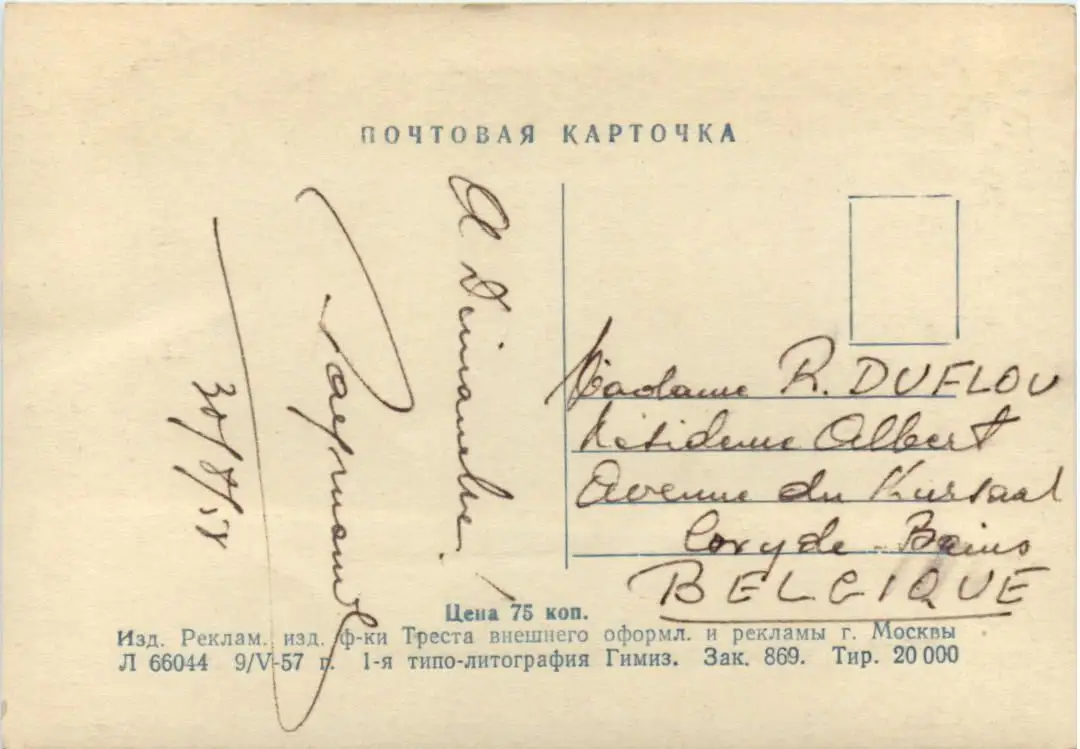 ПОЧТОВАЯ КАРТОЧКА
A Dimanche!
30/8/58
Madame R. DUFLOU
Résidence Albert
Avenue du Kursaal
Coxyde-Bains
BELGIQUE
Цена 75 коп.
Изд. Реклам. изд. ф-ки Треста внешнего оформл. и рекламы г. Москвы
Л 66044 9/V-57 г. 1-я типо-литография Гимиз. Зак. 869. Тир. 20 000